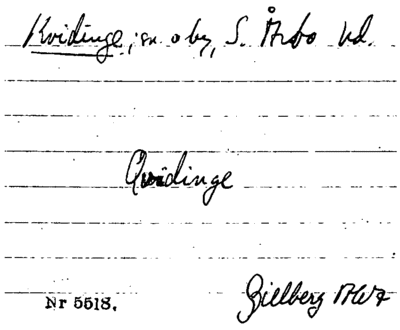 Kvidinge, sn o by, S. Åsbo hd.
Qvidinge
Nr 5518. Gillberg